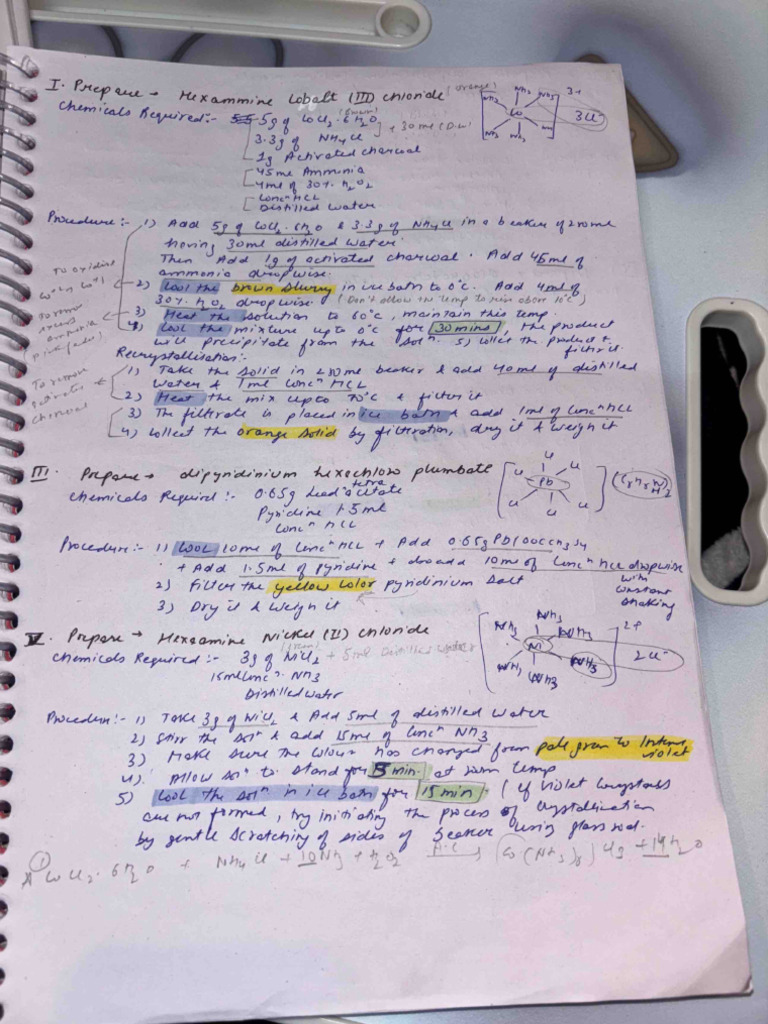 I. Prepare → Hexammine Cobalt (III) chloride (orange)
Chemicals Required:- 5g of CoCl2.6H2O (Brown)
3.3g of NH4Cl + 30 ml (D.W)
1g Activated charcoal
45ml Ammonia
4ml of 30% H2O2
Concn HCL
Distilled Water
NH3 NH3 NH3 Co NH3 NH3 3+ 3Cl-
Procedure:- 1) Add 5g of CoCl2.6H2O & 3.3g of NH4Cl in a beaker of 200ml
having 30ml distilled water.
Then Add 1g of activated charcoal. Add 45ml of
ammonia dropwise.
2) Cool the brown slurry in ice bath to 0°C. Add 4ml of
30% H2O2 dropwise. (Don't allow the temp to rise above 10°C)
3) Heat the solution to 60°C, maintain this temp.
4) Cool the mixture up to 0°C for 30 mins, the product
will precipitate from the soln. 5) Collect the product &
filter it.
To oxidise
To remove
excess
ammonia
Recrystallisation:-
1) Take the solid in 250ml beaker & add 40ml of distilled
Water & 1ml Concn HCL
2) Heat the mix upto 70°C & filter it
3) The filtrate is placed in ice bath & add 1ml of Concn HCL
4) Collect the orange solid by filtration, dry it & weigh it
To remove
activated
charcoal
III. Prepare → dipyridinium hexachloro plumbate
Chemicals Required:- 0.65g Lead tetra acetate
Pyridine 1.5ml
Concn HCL
Cl Cl Cl Pb Cl Cl Cl (C5H5NH)2
Procedure:- 1) Cool 10ml of Concn HCL + Add 0.65g Pb(OOCCH3)4
+ Add 1.5ml of pyridine + add 10ml of Concn HCL dropwise
with
constant
shaking
2) Filter the yellow color pyridinium salt
3) Dry it & Weigh it
V. Prepare → Hexaamine Nickel (II) chloride
Chemicals Required:- 3g of NiCl2 (green) + 5ml Distilled Water
15ml Concn NH3
Distilled water
NH3 NH3 NH3 Ni NH3 NH3 NH3 2+ 2Cl-
Procedure:- 1) Take 3g of NiCl2 & Add 5ml of distilled Water
2) Stir the soln & add 15ml of Concn NH3
3) Make sure the colour has changed from pale green to Intense
violet
4) Allow soln to stand for 5 min. at room temp
5) Cool the soln in ice bath for 15 min (if violet crystals
are not formed, try initiating the process of crystallisation
by gentle scratching of sides of beaker using glass rod.
① CoCl2.6H2O + NH4Cl + 10NH3 + H2O2 A.C → Co(NH3)6 + 14H2O